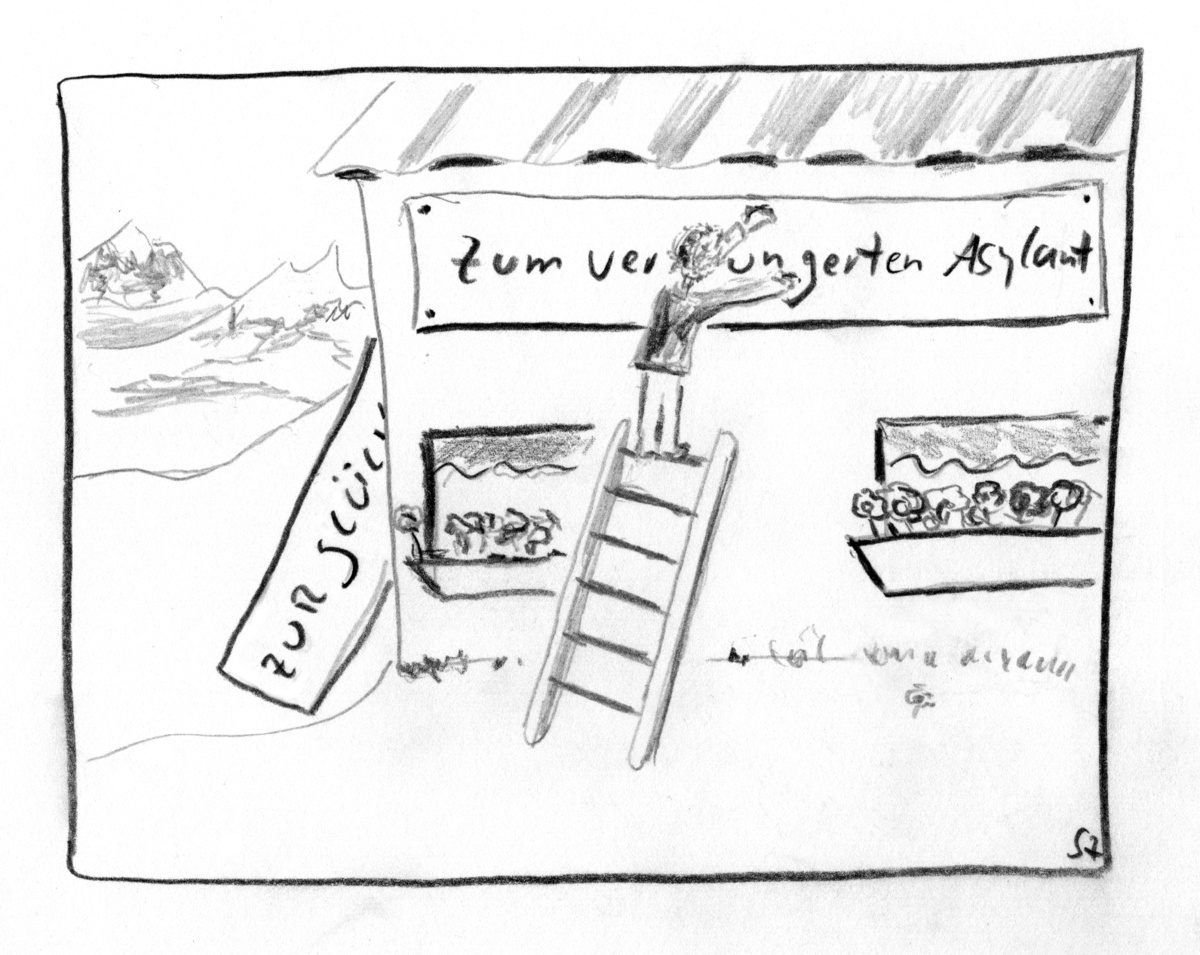 Zum verhungerten Asylant
ZUR GLÜC